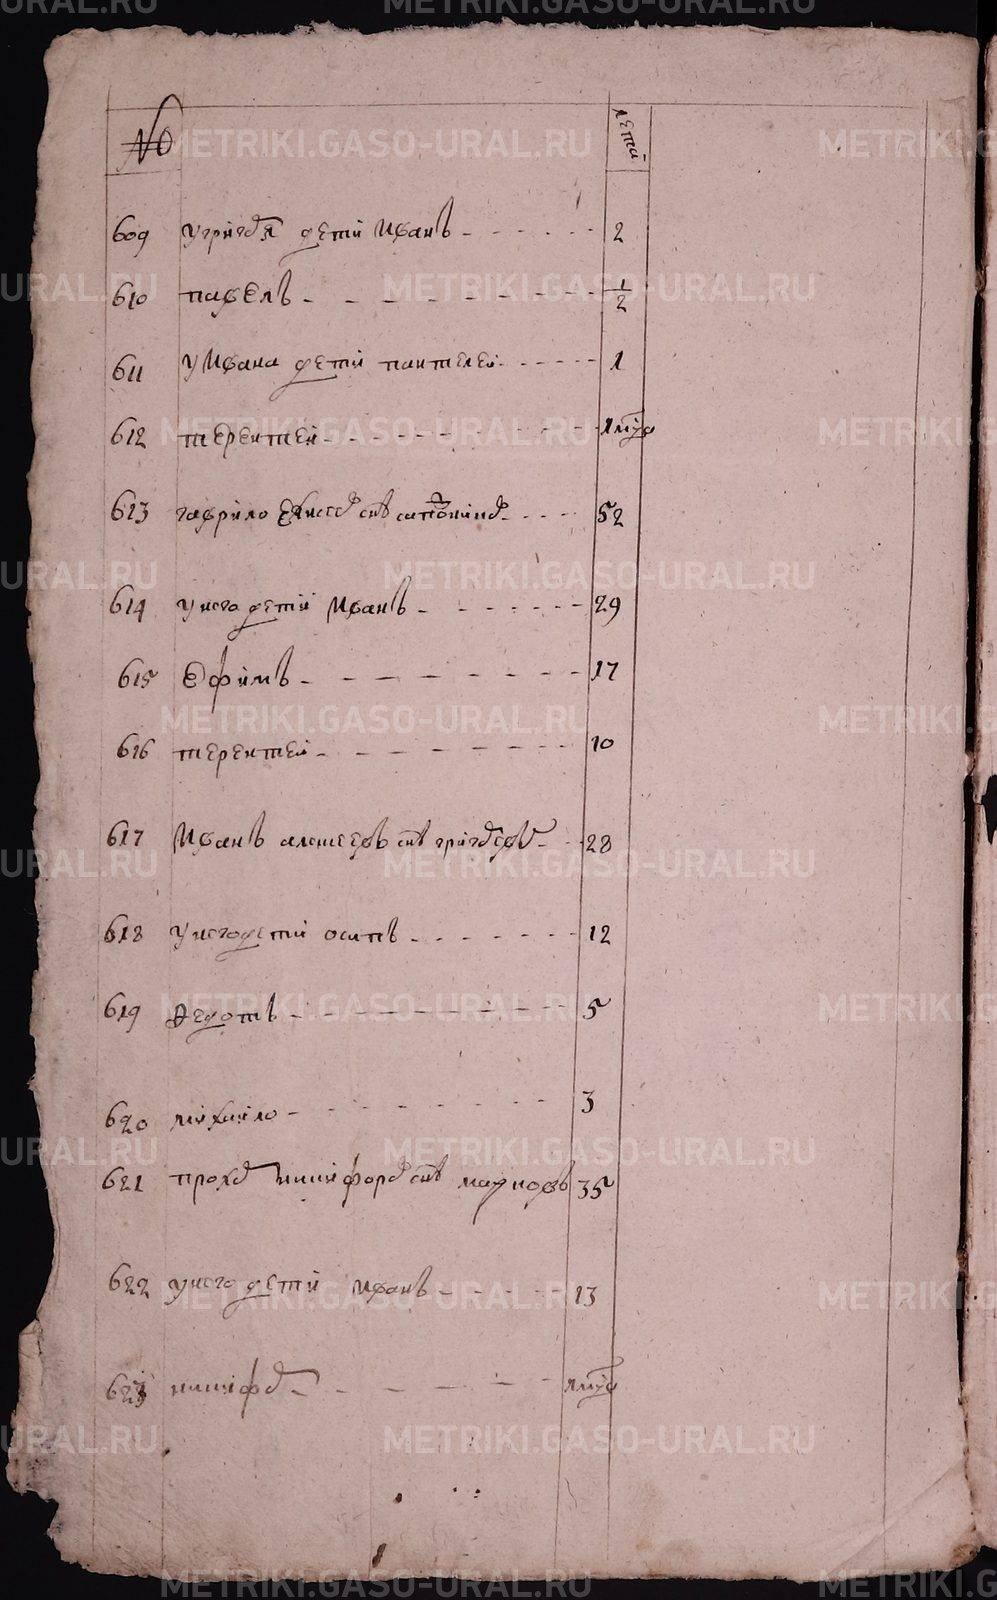 № летъ
609 у григоря детй Иванъ - - - - - 2
610 павелъ - - - - - - - 1/2
611 у Ивана детй пантелей - - - - 1
612 терентей - - - - - - -
613 гаврило снъ - - - - 52
614 у него детй Иванъ - - - - - 29
615 Ефимъ - - - - - - - 17
616 терентей - - - - - - - 10
617 Иванъ алексеевъ снъ - - 28
618 у него детй осипъ - - - - - 12
619 Федотъ - - - - - - - 5
620 михайло - - - - - - - 3
621 прохор никифоров снъ марковъ 35
622 у него детй Иванъ - - - - - 13
623 никифор - - - - -
METRIKI.GASO-URAL.RU